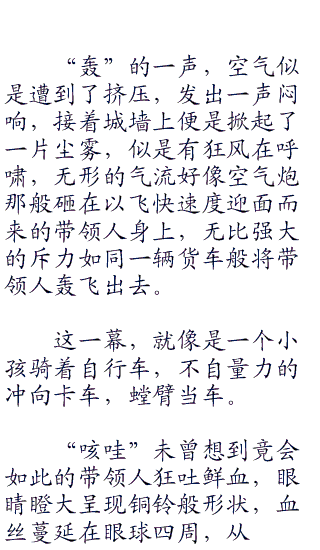 “轰”的一声，空气似
是遭到了挤压，发出一声闷
响，接着城墙上便是掀起了
一片尘雾，似是有狂风在呼
啸，无形的气流好像空气炮
那般砸在以飞快速度迎面而
来的带领人身上，无比强大
的斥力如同一辆货车般将带
领人轰飞出去。
这一幕，就像是一个小
孩骑着自行车，不自量力的
冲向卡车，螳臂当车。
“咳哇”未曾想到竟会
如此的带领人狂吐鲜血，眼
睛瞪大呈现铜铃般形状，血
丝蔓延在眼球四周，从